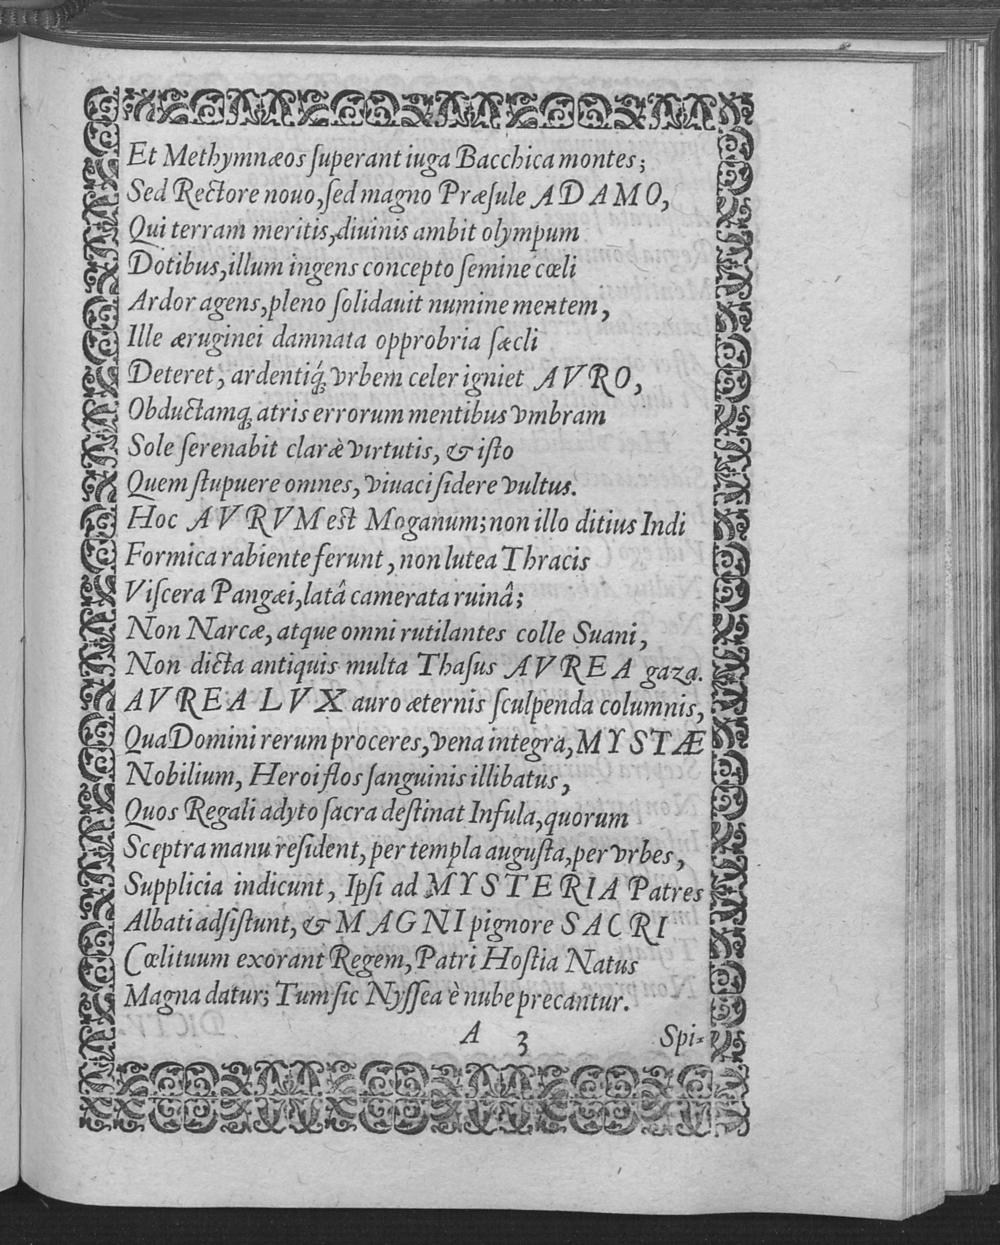 Et Methymnæos ſuperant iuga Bacchica montes;
Sed Rectore nouo, ſed magno Præſule ADAMO,
Qui terram meritis, diuinis ambit olympum
Dotibus, illum ingens concepto ſemine cœli
Ardor agens, pleno ſolidauit numine mentem,
Ille æruginei damnata opprobria ſæcli
Deteret, ardentiq́; vrbem celer igniet AVRO,
Obductamq; atris errorum mentibus vmbram
Sole ſerenabit claræ virtutis, & iſto
Quem ſtupuere omnes, viuaci ſidere vultus.
Hoc AVRVM est Moganum; non illo ditius Indi
Formica rabiente ferunt, non lutea Thracis
Viſcera Pangæi, latâ camerata ruinâ;
Non Narcæ, atque omni rutilantes colle Suani,
Non dicta antiquis multa Thaſus AVREA gaza.
AVREA LVX auro æternis ſculpenda columnis,
Qua Domini rerum proceres, vena integra, MYSTÆ
Nobilium, Heroi flos ſanguinis illibatus,
Quos Regali adyto ſacra deſtinat Inſula, quorum
Sceptra manu reſident, per templa auguſta, per vrbes,
Supplicia indicunt, Ipſi ad MYSTERIA Patres
Albati adſiſtunt, & MAGNI pignore SACRI
Cœlituum exorant Regem, Patri Hoſtia Natus
Magna datur; Tum ſic Nyſſea è nube precantur.
A 3 Spi-